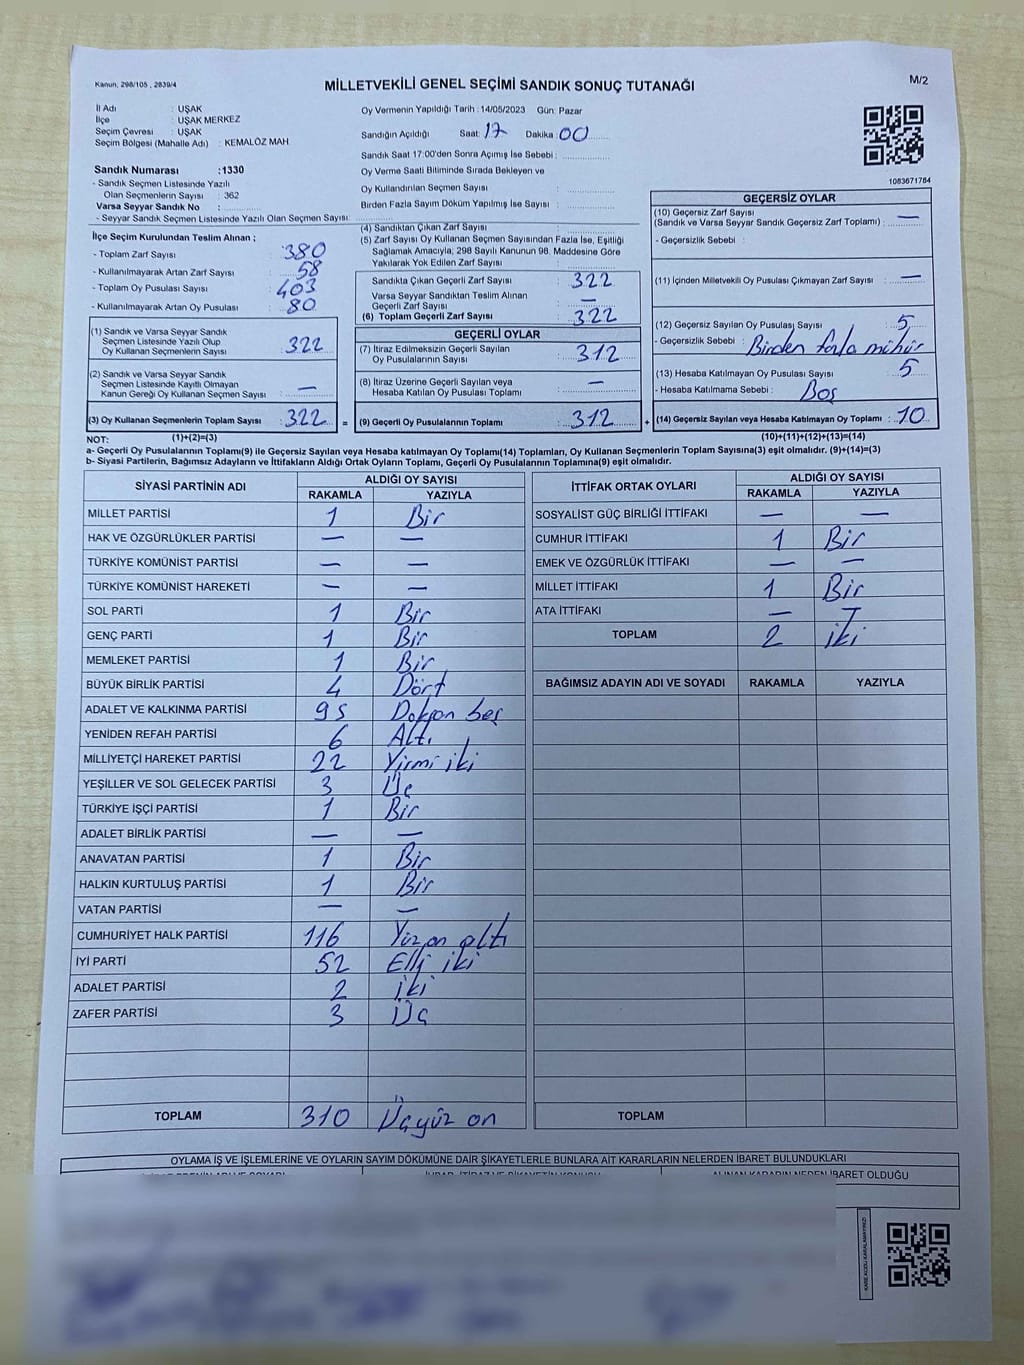 Kanun, 298/105 , 2839/4
MİLLETVEKİLİ GENEL SEÇİMİ SANDIK SONUÇ TUTANAĞI
M/2
İl Adı : UŞAK
İlçe : UŞAK MERKEZ
Seçim Çevresi : UŞAK
Seçim Bölgesi (Mahalle Adı) : KEMALÖZ MAH
Oy Vermenin Yapıldığı Tarih : 14/05/2023 Gün: Pazar
Sandığın Açıldığı Saat: 17 Dakika : 00
Sandık Saat 17:00'den Sonra Açımış İse Sebebi :
Oy Verme Saati Bitiminde Sırada Bekleyen ve
Oy Kullandırılan Seçmen Sayısı :
Birden Fazla Sayım Döküm Yapılmış İse Sayısı :
1083671784
Sandık Numarası :1330
- Sandık Seçmen Listesinde Yazılı
Olan Seçmenlerin Sayısı : 362
Varsa Seyyar Sandık No :
- Seyyar Sandık Seçmen Listesinde Yazılı Olan Seçmen Sayısı:
İlçe Seçim Kurulundan Teslim Alınan ;
- Toplam Zarf Sayısı : 380
- Kullanılmayarak Artan Zarf Sayısı : 58
- Toplam Oy Pusulası Sayısı : 403
- Kullanılmayarak Artan Oy Pusulası : 80
(1) Sandık ve Varsa Seyyar Sandık
Seçmen Listesinde Yazılı Olup
Oy Kullanan Seçmenlerin Sayısı : 322
(2) Sandık ve Varsa Seyyar Sandık
Seçmen Listesinde Kayıtlı Olmayan
Kanun Gereği Oy Kullanan Seçmen Sayısı : —
(3) Oy Kullanan Seçmenlerin Toplam Sayısı : 322 =
(4) Sandıktan Çıkan Zarf Sayısı :
(5) Zarf Sayısı Oy Kullanan Seçmen Sayısından Fazla İse, Eşitliği
Sağlamak Amacıyla; 298 Sayılı Kanunun 98. Maddesine Göre
Yakılarak Yok Edilen Zarf Sayısı :
Sandıkta Çıkan Geçerli Zarf Sayısı : 322
Varsa Seyyar Sandıktan Teslim Alınan
Geçerli Zarf Sayısı : —
(6) Toplam Geçerli Zarf Sayısı : 322
GEÇERLİ OYLAR
(7) İtiraz Edilmeksizin Geçerli Sayılan
Oy Pusulalarının Sayısı : 312
(8) İtiraz Üzerine Geçerli Sayılan veya
Hesaba Katılan Oy Pusulası Toplamı : —
(9) Geçerli Oy Pusulalarının Toplamı : 312 +
GEÇERSİZ OYLAR
(10) Geçersiz Zarf Sayısı
(Sandık ve Varsa Seyyar Sandık Geçersiz Zarf Toplamı) : —
- Geçersizlik Sebebi :
(11) İçinden Milletvekili Oy Pusulası Çıkmayan Zarf Sayısı : —
(12) Geçersiz Sayılan Oy Pusulası Sayısı : 5
- Geçersizlik Sebebi : Birden fazla mühür
(13) Hesaba Katılmayan Oy Pusulası Sayısı : 5
- Hesaba Katılmama Sebebi : Boş
(14) Geçersiz Sayılan veya Hesaba Katılmayan Oy Toplamı : 10
NOT: (1)+(2)=(3) (10)+(11)+(12)+(13)=(14)
a- Geçerli Oy Pusulalarının Toplamı(9) ile Geçersiz Sayılan veya Hesaba katılmayan Oy Toplamı(14) Toplamları, Oy Kullanan Seçmenlerin Toplam Sayısına(3) eşit olmalıdır. (9)+(14)=(3)
b- Siyasi Partilerin, Bağımsız Adayların ve İttifakların Aldığı Ortak Oyların Toplamı, Geçerli Oy Pusulalarının Toplamına(9) eşit olmalıdır.
SİYASİ PARTİNİN ADI ALDIĞI OY SAYISI
RAKAMLA YAZIYLA
MİLLET PARTİSİ 1 Bir
HAK VE ÖZGÜRLÜKLER PARTİSİ — —
TÜRKİYE KOMÜNİST PARTİSİ — —
TÜRKİYE KOMÜNİST HAREKETİ — —
SOL PARTİ 1 Bir
GENÇ PARTİ 1 Bir
MEMLEKET PARTİSİ 1 Bir
BÜYÜK BİRLİK PARTİSİ 4 Dört
ADALET VE KALKINMA PARTİSİ 95 Doksan beş
YENİDEN REFAH PARTİSİ 6 Altı
MİLLİYETÇİ HAREKET PARTİSİ 22 Yirmi iki
YEŞİLLER VE SOL GELECEK PARTİSİ 3 Üç
TÜRKİYE İŞÇİ PARTİSİ 1 Bir
ADALET BİRLİK PARTİSİ — —
ANAVATAN PARTİSİ 1 Bir
HALKIN KURTULUŞ PARTİSİ 1 Bir
VATAN PARTİSİ — —
CUMHURİYET HALK PARTİSİ 116 Yüz on altı
İYİ PARTİ 52 Elli iki
ADALET PARTİSİ 2 İki
ZAFER PARTİSİ 3 Üç
TOPLAM 310 Üçyüz on
İTTİFAK ORTAK OYLARI ALDIĞI OY SAYISI
RAKAMLA YAZIYLA
SOSYALİST GÜÇ BİRLİĞİ İTTİFAKI — —
CUMHUR İTTİFAKI 1 Bir
EMEK VE ÖZGÜRLÜK İTTİFAKI — —
MİLLET İTTİFAKI 1 Bir
ATA İTTİFAKI — —
TOPLAM 2 iki
BAĞIMSIZ ADAYIN ADI VE SOYADI RAKAMLA YAZIYLA
TOPLAM
OYLAMA İŞ VE İŞLEMLERİNE VE OYLARIN SAYIM DÖKÜMÜNE DAİR ŞİKAYETLERLE BUNLARA AİT KARARLARIN NELERDEN İBARET BULUNDUKLARI
ALINAN KARARIN NEDEN İBARET OLDUĞU
KARE KODU KARALAMAYINIZ!